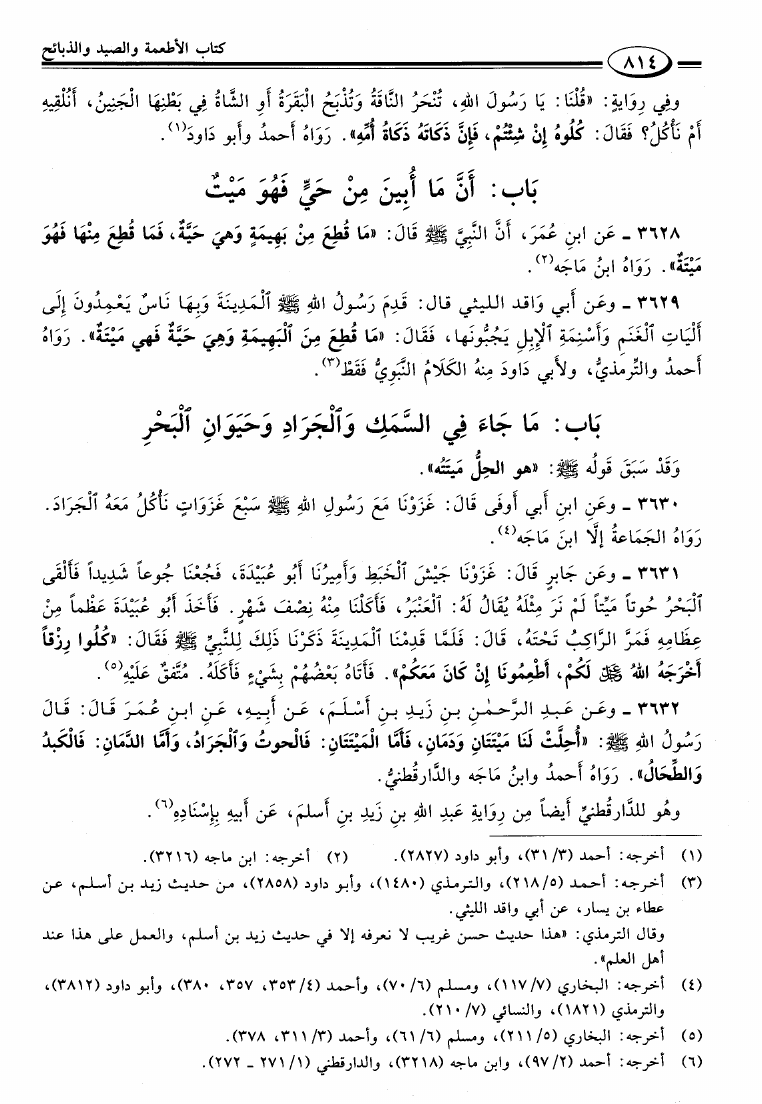 كتاب الأطعمة والصيد والذبائح
٨١٤
وفِي رِوَايَةٍ: «قُلْنَا: يَا رَسُولَ اللهِ، تُنْحَرُ النَّاقَةُ وَتُذْبَحُ الْبَقَرَةُ أَوِ الشَّاةُ فِي بَطْنِهَا الْجَنِينُ، أَنُلْقِيهِ
أَمْ نَأْكُلُ؟ فَقَالَ: كُلُوهُ إِنْ شِئْتُمْ، فَإِنَّ ذَكَاتَهُ ذَكَاةُ أُمِّهِ». رَوَاهُ أَحمدُ وأبو دَاودَ(١).
بَاب: أَنَّ مَا أُبِينَ مِنْ حَيٍّ فَهُوَ مَيْتٌ
٣٦٢٨ ـ عَن ابنِ عُمَرَ، أَنَّ النَّبِيَّ ﷺ قَالَ: «مَا قُطِعَ مِنْ بَهِيمَةٍ وَهيَ حَيَّةٌ، فَمَا قُطِعَ مِنْهَا فَهُوَ
مَيْتَةٌ». رَوَاهُ ابنُ مَاجَه(٢).
٣٦٢٩ ـ وعَن أَبي وَاقد الليثي قال: قَدِمَ رَسُولُ اللهِ ﷺ الْمَدِينَةَ وَبِهَا نَاسٌ يَعْمِدُونَ إِلَى
أَلْيَاتِ الْغَنَمِ وَأَسْنِمَةِ الْإِبِلِ يَجُبُّونَها، فَقَالَ: «مَا قُطِعَ مِنَ الْبَهِيمَةِ وَهِيَ حَيَّةٌ فَهي مَيْتَةٌ». رَوَاهُ
أَحمدُ والتِّرمذيُّ، ولأبي دَاودَ مِنهُ الكَلَامُ النَّبَوِيُّ فَقَطْ(٣).
بَاب: مَا جَاءَ فِي السَّمَكِ وَالْجَرَادِ وَحَيَوَانِ الْبَحْرِ
وَقَدْ سَبَقَ قَولُه ﷺ: «هو الحِلُّ مَيتَتُه».
٣٦٣٠ ـ وعَنِ ابنِ أَبي أَوفى قَالَ: غَزَوْنَا مَعَ رَسُولِ اللهِ ﷺ سَبْعَ غَزَوَاتٍ نَأْكُلُ مَعَهُ الْجَرَادَ.
رَوَاهُ الجَمَاعةُ إِلَّا ابنَ مَاجَه(٤).
٣٦٣١ ـ وعَن جَابرٍ قَالَ: غَزَوْنَا جَيْشَ الْخَبَطِ وَأَمِيرُنَا أَبُو عُبَيْدَةَ، فَجُعْنَا جُوعاً شَدِيداً فَأَلْقَى
الْبَحْرُ حُوتاً مَيِّتاً لَمْ نَرَ مِثْلَهُ يُقَالُ لَهُ: الْعَنْبَرُ، فَأَكَلْنَا مِنْهُ نِصْفَ شَهْرٍ. فَأَخَذَ أَبُو عُبَيْدَةَ عَظْماً مِنْ
عِظَامِهِ فَمَرَّ الرَّاكِبُ تَحْتَهُ، قَالَ: فَلَمَّا قَدِمْنَا الْمَدِينَةَ ذَكَرْنَا ذَلِكَ لِلنَّبِيِّ ﷺ فَقَالَ: «كُلُوا رِزْقاً
أَخْرَجَهُ اللهُ ﷻ لَكُمْ، أَطْعِمُونَا إِنْ كَانَ مَعَكُمْ». فَأَتَاهُ بَعْضُهُمْ بِشَيْءٍ فَأَكَلَهُ. مُتَّفَقٌ عَلَيْهِ(٥).
٣٦٣٢ ـ وعَن عَبدِ الرَّحمٰنِ بنِ زَيدِ بنِ أَسْلَمَ، عَن أَبيهِ، عَنِ ابنِ عُمَرَ قَالَ: قَالَ
رَسُولُ اللهِ ﷺ: «أُحِلَّتْ لَنَا مَيْتَتَانِ وَدَمَانِ، فَأَمَّا الْمَيْتَتَانِ: فَالْحوتُ وَالْجَرَادُ، وَأَمَّا الدَّمَانِ: فَالْكَبدُ
وَالطِّحَالُ». رَوَاهُ أَحمدُ وابنُ مَاجَه والدَّارقُطنيُّ.
وهُو للدَّارقُطنيِّ أيضاً مِن رِوَايَةِ عَبدِ اللهِ بنِ زَيدِ بنِ أَسلمَ، عَن أَبيهِ بِإِسْنَادِهِ(٦).
(١) أخرجه: أحمد (٣/ ٣١)، وأبو داود (٢٨٢٧). (٢) أخرجه: ابن ماجه (٣٢١٦).
(٣) أخرجه: أحمد (٥/ ٢١٨)، والترمذي (١٤٨٠)، وأبو داود (٢٨٥٨)، من حديث زيد بن أسلم، عن
عطاء بن يسار، عن أبي واقد الليثي.
وقال الترمذي: «هذا حديث حسن غريب لا نعرفه إلا في حديث زيد بن أسلم، والعمل على هذا عند
أهل العلم».
(٤) أخرجه: البخاري (٧/ ١١٧)، ومسلم (٦/ ٧٠)، وأحمد (٤/ ٣٥٣، ٣٥٧، ٣٨٠)، وأبو داود (٣٨١٢)،
والترمذي (١٨٢١)، والنسائي (٧/ ٢١٠).
(٥) أخرجه: البخاري (٥/ ٢١١)، ومسلم (٦/ ٦١)، وأحمد (٣/ ٣١١، ٣٧٨).
(٦) أخرجه: أحمد (٢/ ٩٧)، وابن ماجه (٣٢١٨)، والدارقطني (١/ ٢٧١ ـ ٢٧٢).